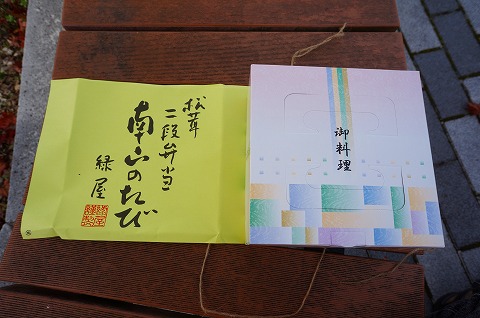 松茸
二段弁当
南山のたび
緑屋
御料理